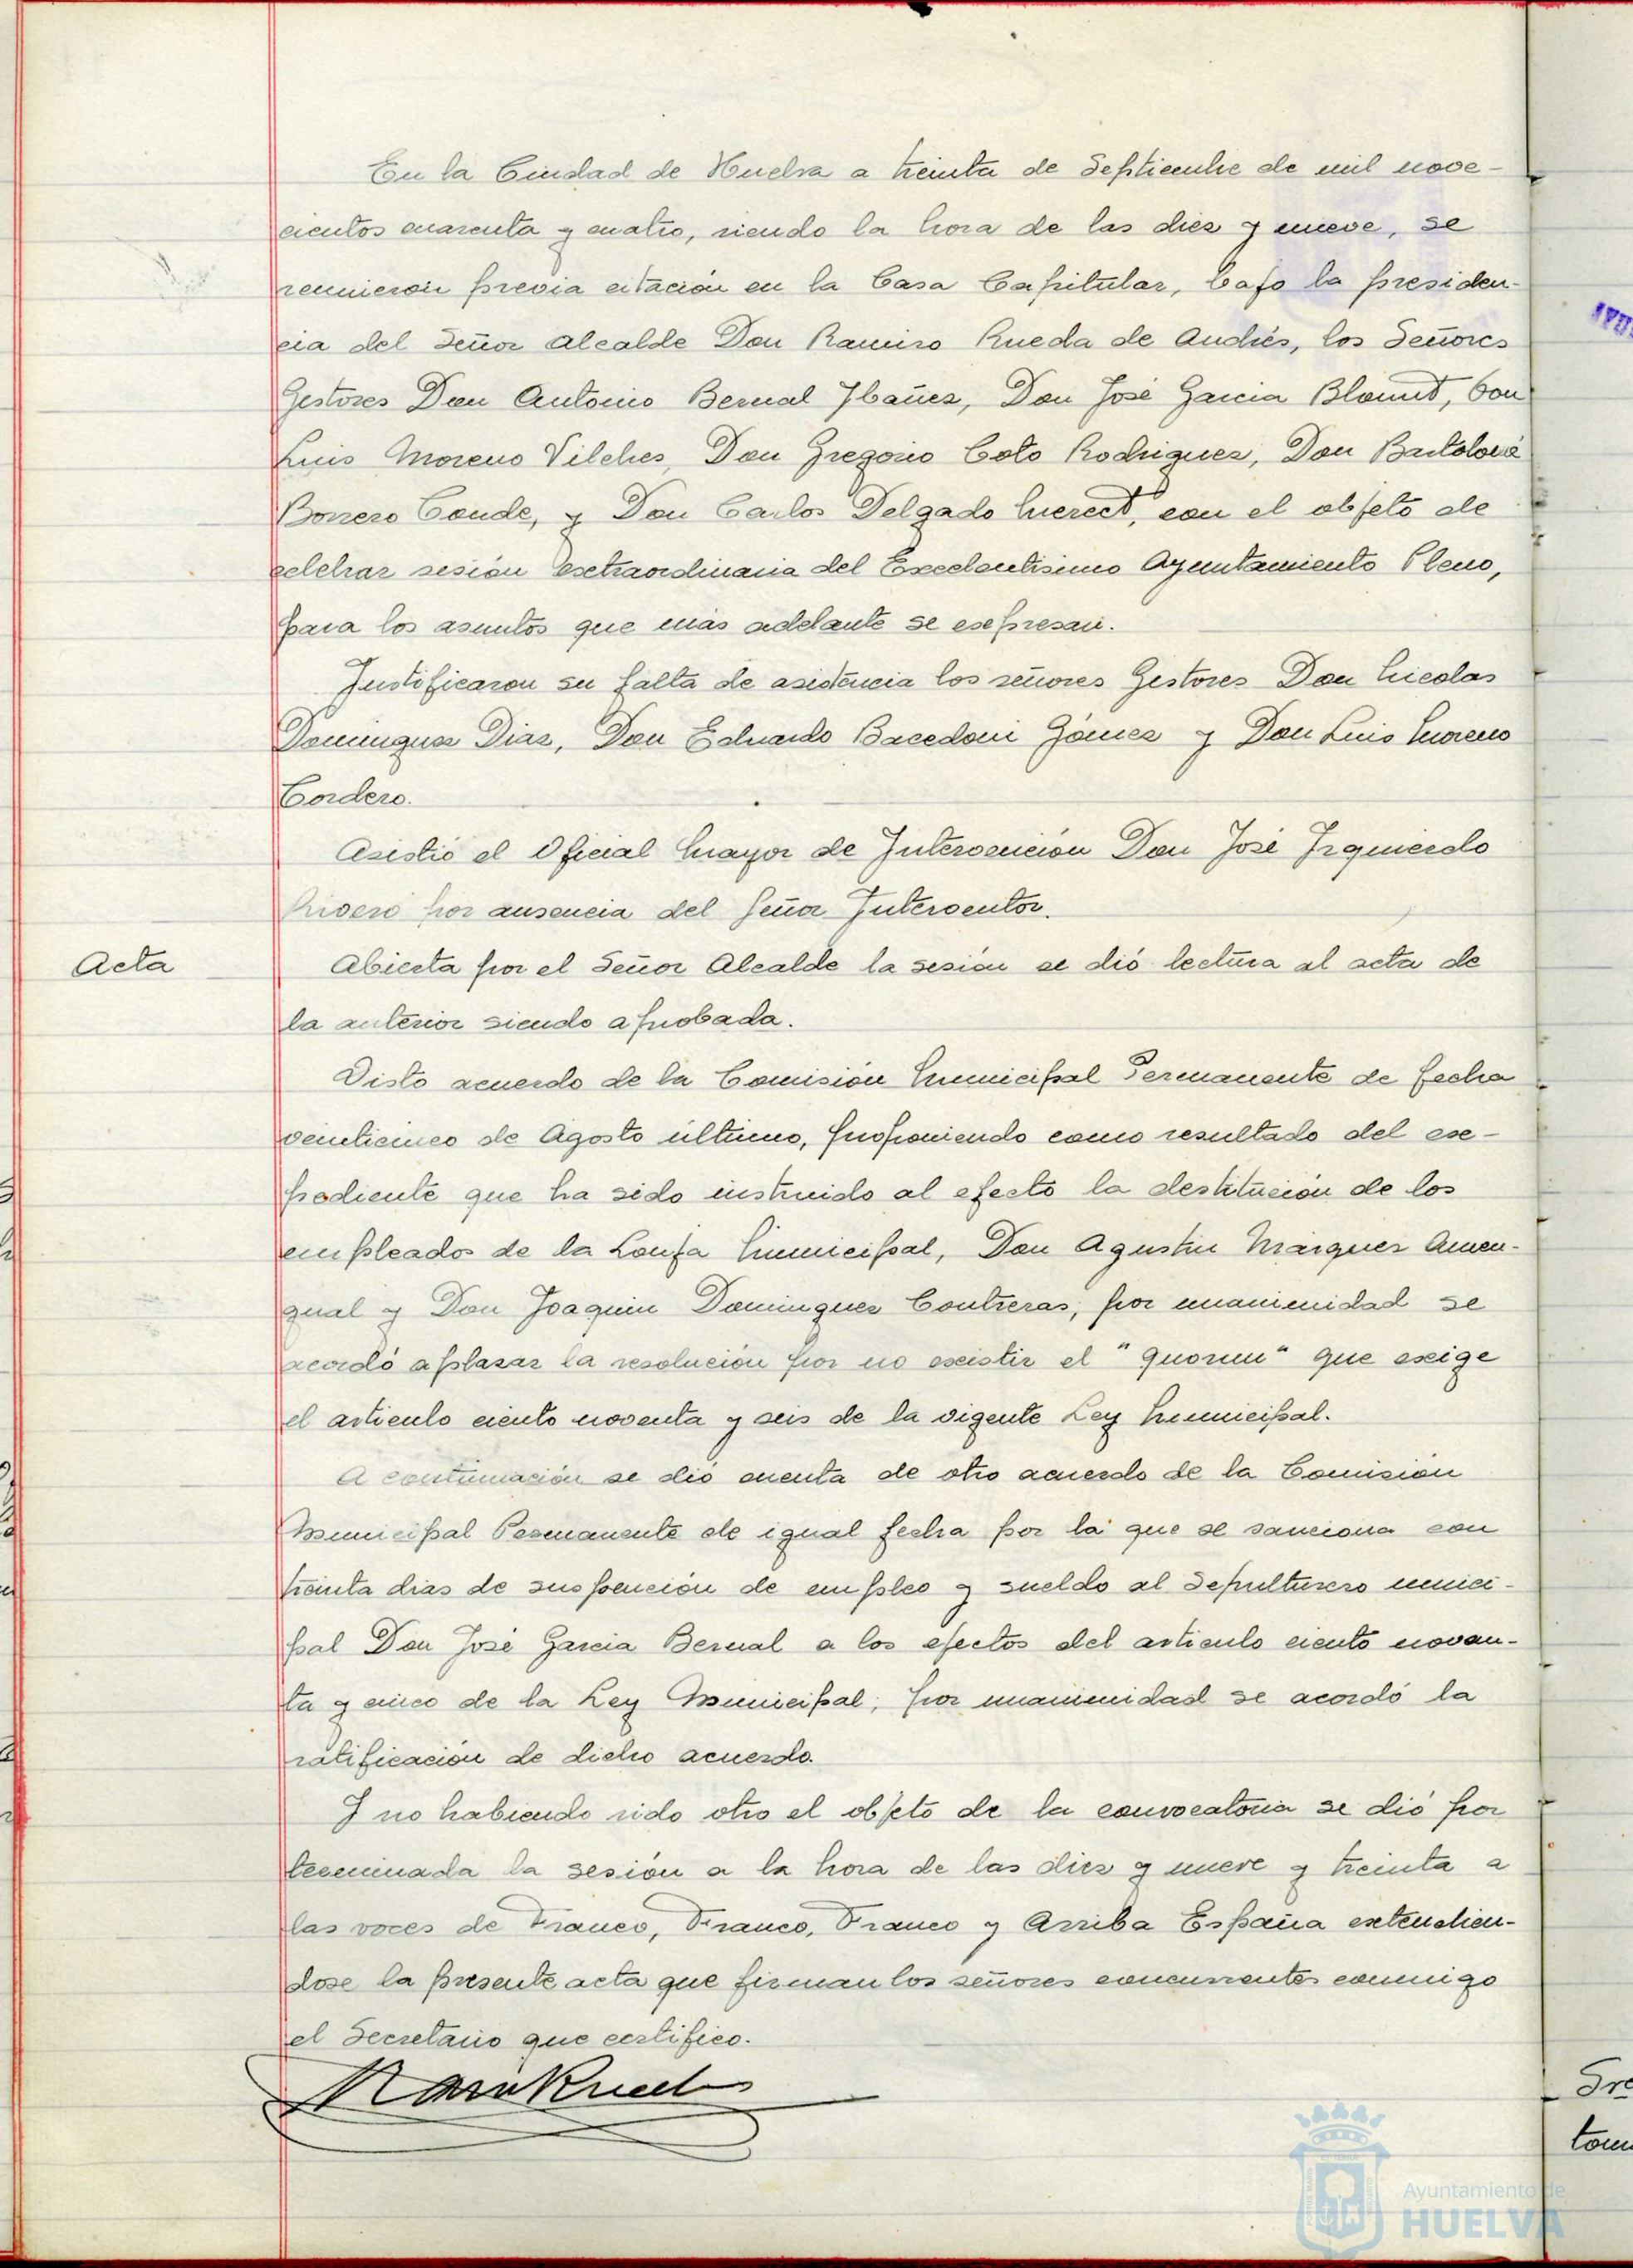 En la Ciudad de Huelva a treinta de Septiembre de mil nove-
cientos cuarenta y cuatro, siendo la hora de las diez y nueve, se
reunieron previa citación en la Casa Capitular, bajo la presiden-
cia del Señor Alcalde Don Ramiro Rueda de Andrés, los Señores
Gestores Don Antonio Bernal Ibañez, Don José Garcia Blount, Don
Luis Moreno Vilches, Don Gregorio Coto Rodriguez, Don Bartolomé
Borrero Conde, y Don Carlos Delgado con el objeto de
celebrar sesión extraordinaria del Excelentisimo Ayuntamiento Pleno,
para los asuntos que más adelante se expresan.
Justificaron su falta de asistencia los señores Gestores Don Nicolas
Dominguez Diaz, Don Eduardo Bacedoni Gómez y Don Luis Moreno
Cordero.
Asistió el Oficial Mayor de Intervención Don José Izquierdo
Rivero por ausencia del Señor Interventor.
Acta
Abierta por el Señor Alcalde la sesión se dió lectura al acta de
la anterior siendo aprobada.
Visto acuerdo de la Comisión Municipal Permanente de fecha
veinticinco de Agosto último, proponiendo como resultado del ex-
pediente que ha sido instruido al efecto la destitución de los
empleados de la Lonja Municipal, Don Agustin Márquez Amen-
gual y Don Joaquin Dominguez Contreras, por unanimidad se
acordó aplazar la resolución por no existir el "quorum" que exige
el articulo ciento noventa y seis de la vigente Ley Municipal.
A continuación se dió cuenta de otro acuerdo de la Comisión
Municipal Permanente de igual fecha por la que se sanciona con
treinta dias de suspención de empleo y sueldo al Sepulturero munici-
pal Don José Garcia Bernal a los efectos del articulo ciento noven-
ta y cinco de la Ley Municipal; por unanimidad se acordó la
ratificación de dicho acuerdo.
Y no habiendo sido otro el objeto de la convocatoria se dió por
terminada la sesión a la hora de las diez y nueve y treinta a
las voces de Franco, Franco, Franco y Arriba España extendien-
dose la presente acta que firman los señores concurrentes conmigo
el Secretario que certifico.
Ayuntamiento de
HUELVA